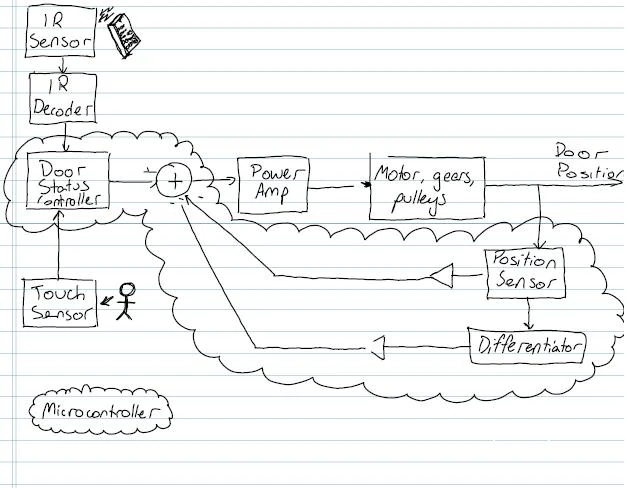 IR
Sensor
IR
Decoder
Door
Status
Controller
+
Power
Amp
Motor, gears,
pulleys
Door
Position
Touch
Sensor
Position
Sensor
Differentiator
Microcontroller